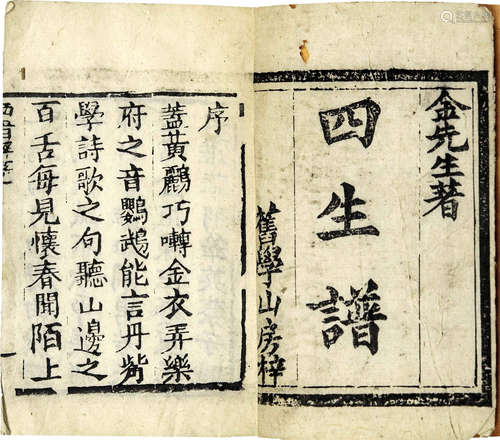 金先生著
四生譜
舊學山房梓
序
蓋黃鸝巧囀金衣弄樂
府之音鸚鵡能言丹觜
學詩歌之句聽山邊之
百舌每見懷春聞陌上